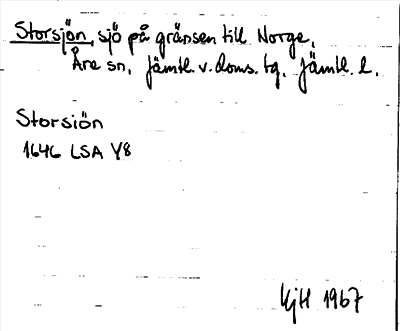 Storsjön, sjö på gränsen till Norge,
Åre sn, Jämtl. v. doms. tg. Jämtl. l.
Storsiön
1646 LSA Y8
KjH 1967